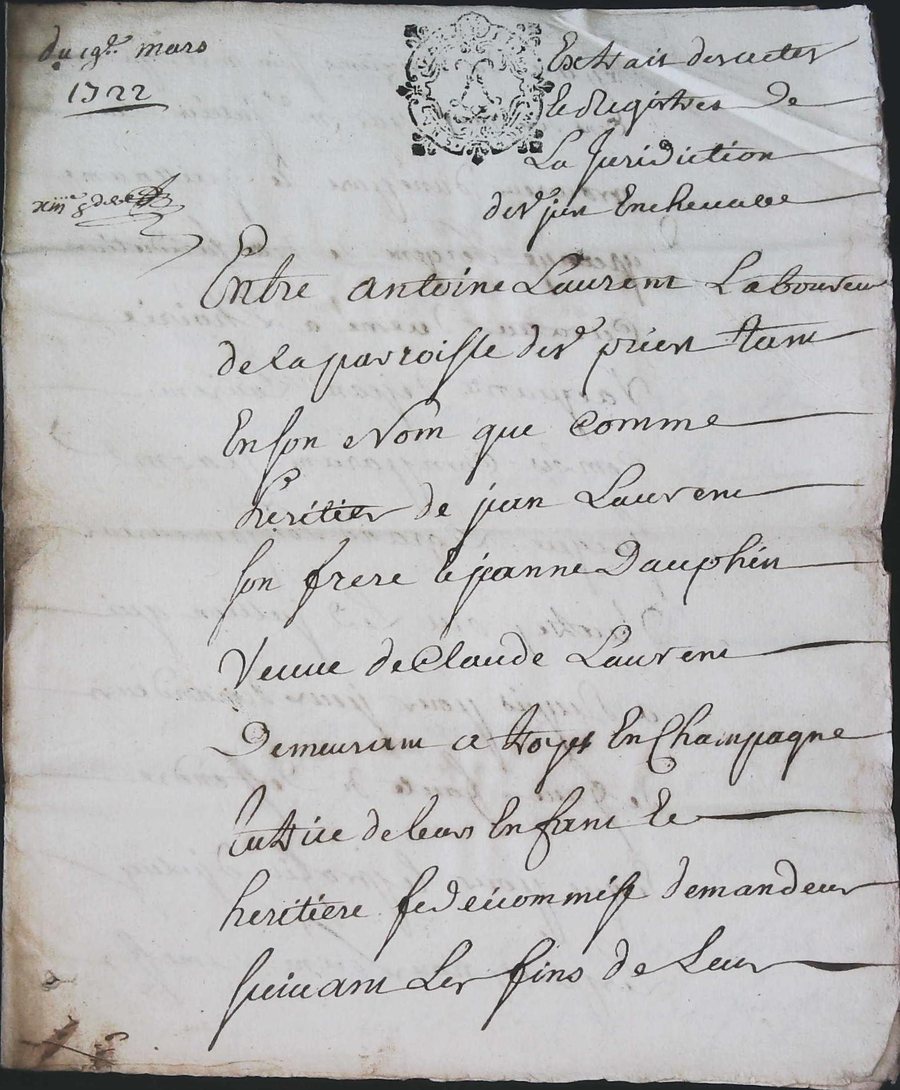 du 19e mars
1722
Extrait des actes
le Registres de
La Juridiction
de st jan En chevalle
Entre antoine Laurent Laboureur
de la parroisse de st priest tant
En son Nom que Comme
heritier de jean Laurent
son frere le jeanne Dauphin
Veuve de Claude Laurent
Demeurant a troyes En Champagne
tutrice de leurs Enfant Et
heritiere fedeicommisse demandeur
suivant Les fins de Leur